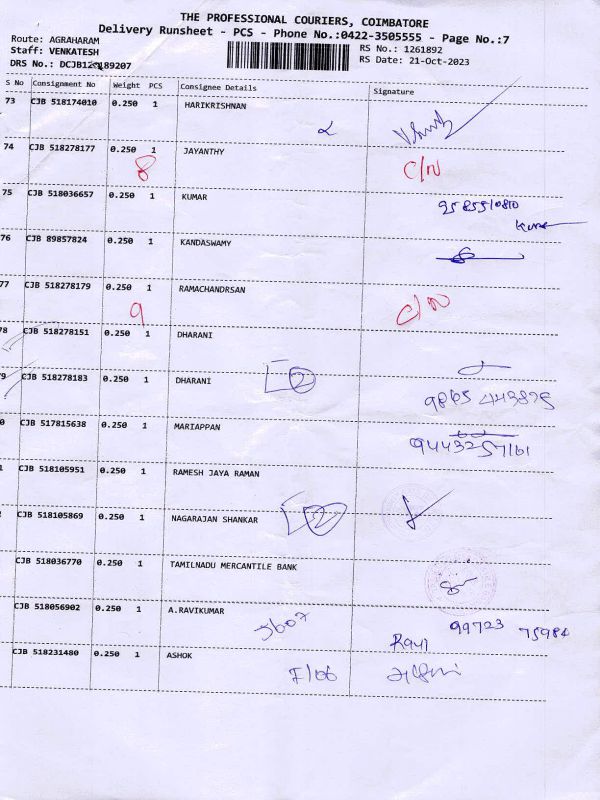 THE PROFESSIONAL COURIERS, COIMBATORE
Delivery Runsheet - PCS - Phone No.:0422-3505555 - Page No.:7
Route: AGRAHARAM
Staff: VENKATESH
RS No.: 1261892
DRS No.: DCJB12 189207
RS Date: 21-Oct-2023
S No Consignment No Weight PCS Consignee Details Signature
73 CJB 518174010 0.250 1 HARIKRISHNAN
74 CJB 518278177 0.250 1 JAYANTHY C/N
8
75 CJB 518036657 0.250 1 KUMAR 9585510810
Kumar
76 CJB 89857824 0.250 1 KANDASWAMY
77 CJB 518278179 0.250 1 RAMACHANDRSAN C/N
9
78 CJB 518278151 0.250 1 DHARANI
79 CJB 518278183 0.250 1 DHARANI 2 9865 443825
0 CJB 517815638 0.250 1 MARIAPPAN 9443257161
1 CJB 518105951 0.250 1 RAMESH JAYA RAMAN
CJB 518105869 0.250 1 NAGARAJAN SHANKAR 2
CJB 518036770 0.250 1 TAMILNADU MERCANTILE BANK
CJB 518056902 0.250 1 A.RAVIKUMAR 5607 Ravi 99723 75984
CJB 518231480 0.250 1 ASHOK F/06